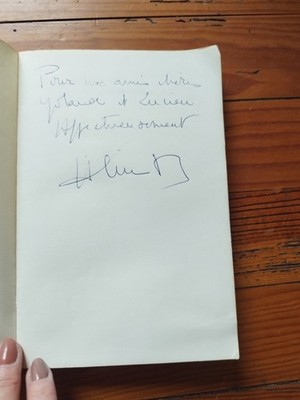 Pour nos amis chers
Yolande et Lucien
Affectueusement